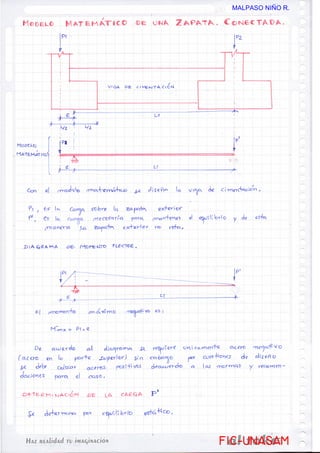 MALPASO NIÑO R.
MODELO MATEMÁTICO DE UNA ZAPATA CONECTADA.
P1
P2
VIGA DE CIMENTACIÓN
e
LE
MODELO
MATEMÁTICO
P'
e
Con el modelo matemático se diseña la viga de cimentación.
P1, es la carga sobre la zapata exterior
P', es la carga necesaria para mantener el equilibrio y de esta
manera la zapata exterior no rota.
DIAGRAMA DE MOMENTO FLECTOR.
P1
P'
-
e
El momento máximo negativo es:
De acuerdo al diagrama se requiere únicamente acero negativo
(acero en la parte superior) sin embargo por cuestiones de diseño
se debe colocar aceros positivos de acuerdo a las normas y recomen-
daciones para el caso.
DETERMINACIÓN DE LA CARGA P'
Se determina por equilibrio estático.
Haz realidad tu imaginación
FIC-UNASAM